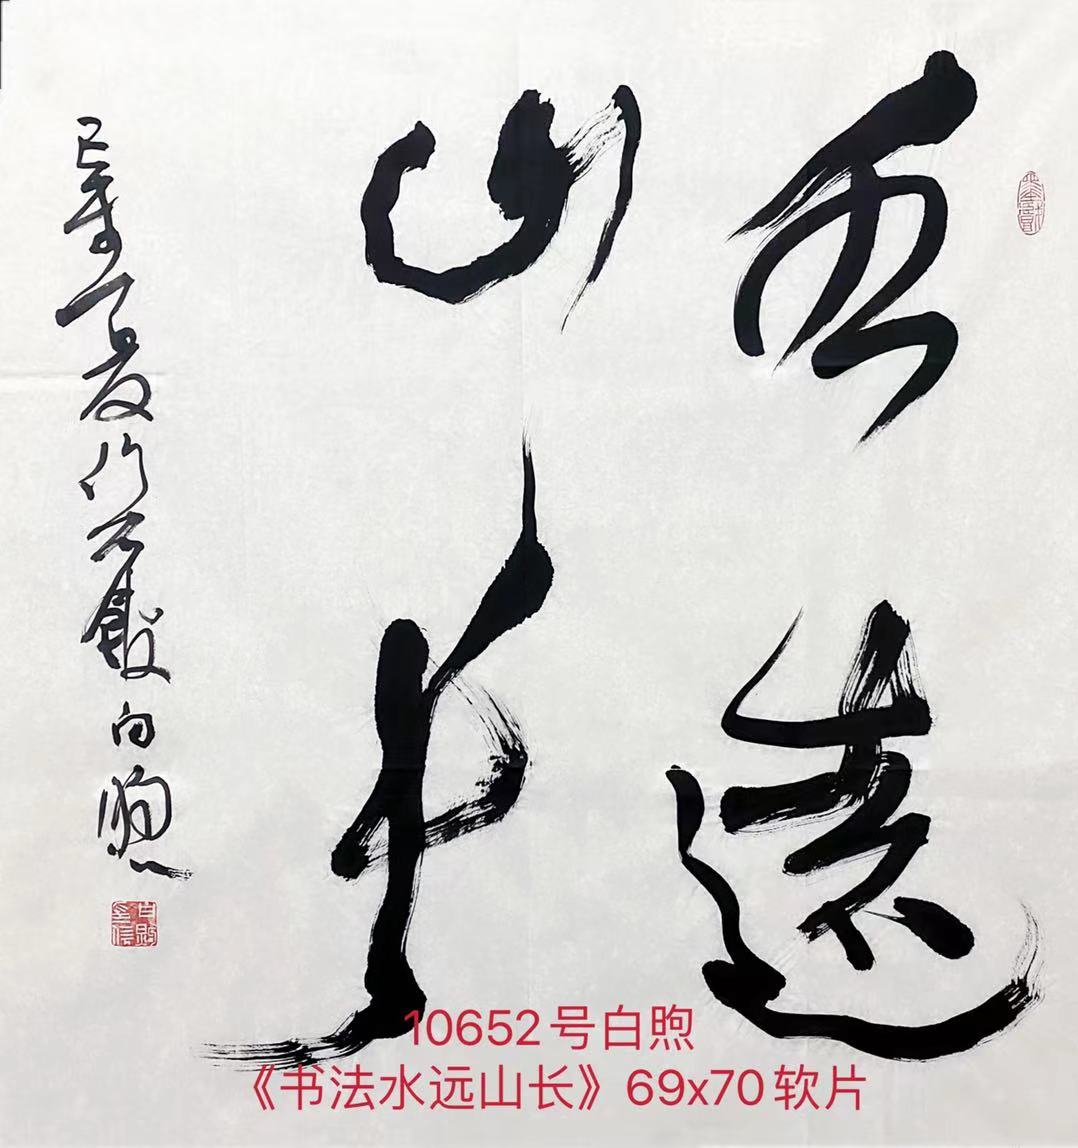 水遠
山長
夏 白煦
10652号白煦
《书法水远山长》69x70软片